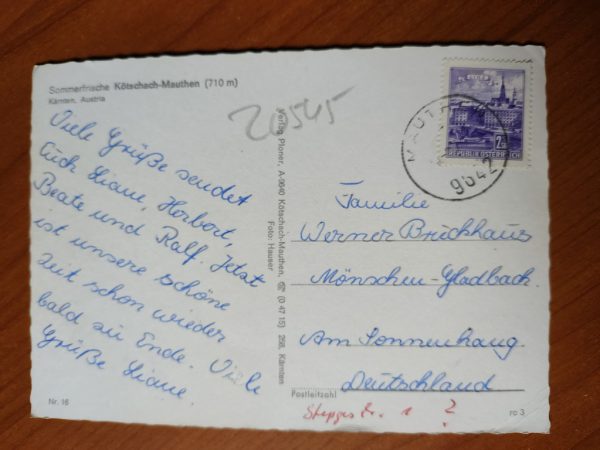 Sommerfrische Kötschach-Mauthen (710 m)
Kärnten, Austria
20545
Viele Grüße sendet
Euch Liane, Herbert,
Beate und Ralf. Jetzt
ist unsere schöne
Zeit schon wieder
bald zu Ende. Viele
Grüße Liane.
Nr. 16
Verlag Ploner, A-9640 Kötschach-Mauthen, ☏ (0 47 15) 258, Kärnten
Foto: Hauser
2.50
REPUBLIK ÖSTERREICH
9642
Familie
Werner Brückhaus
Mönschen-Gladbach.
Am Sonnenhang.
Deutschland
Postleitzahl
1 ?
ro 3